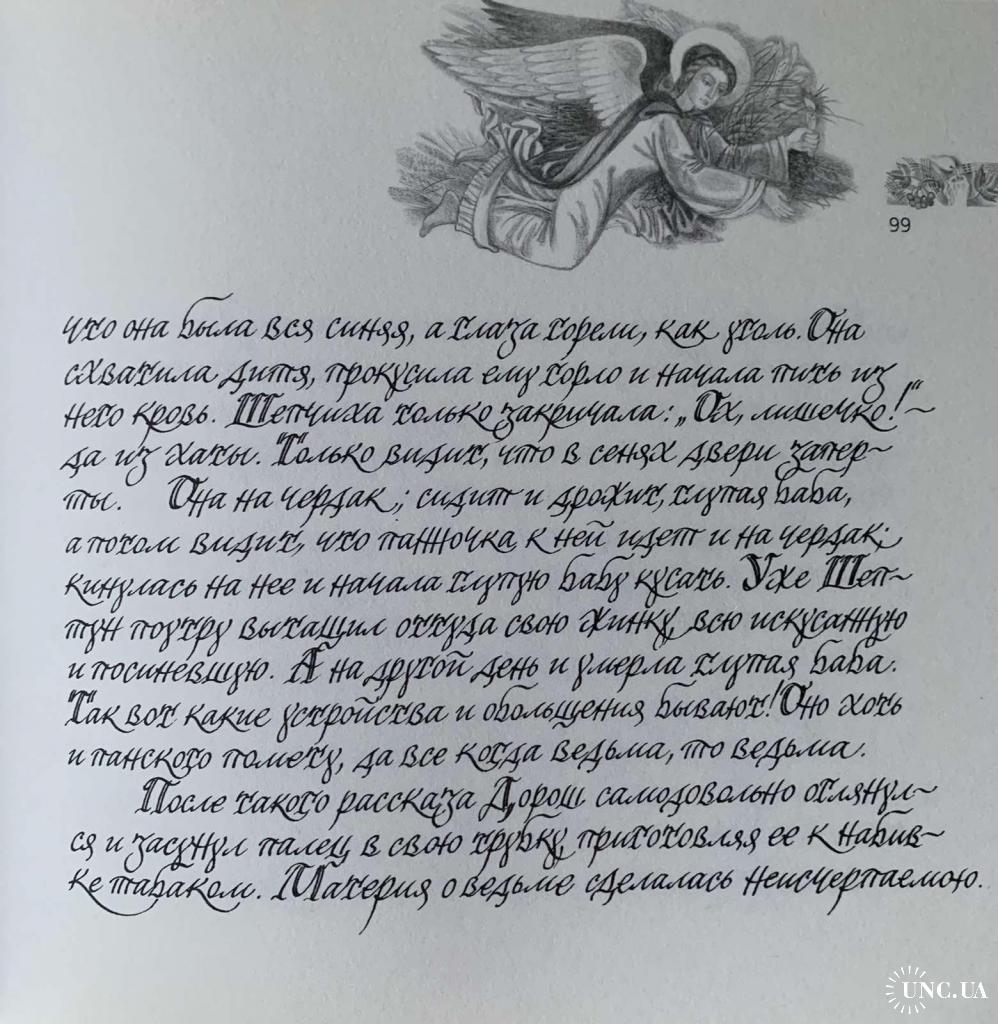 99
что она была вся синяя, а глаза горели, как уголь. Она
схватила дитя, прокусила ему горло и начала пить из
него кровь. Шепчиха только закричала: „Ох, лишечко!“ ~
да из хаты. Только видит, что в сенях двери запер~
ты. Она на чердак; сидит и дрожит, глупая баба,
а потом видит, что панночка к ней идет и на чердак;
кинулась на нее и начала глупую бабу кусать. Уже Шеп~
тун поутру вытащил оттуда свою жинку, всю искусанную
и посиневшую. А на другой день и умерла глупая баба.
Так вот какие устройства и обольщения бывают! Оно хоть
и панского помету, да все когда ведьма, то ведьма.
После такого рассказа Дорош самодовольно оглянул~
ся и засунул палец в свою трубку, приготовляя ее к набив~
ке табаком. Материя о ведьме сделалась неисчерпаемою.
UNC.UA